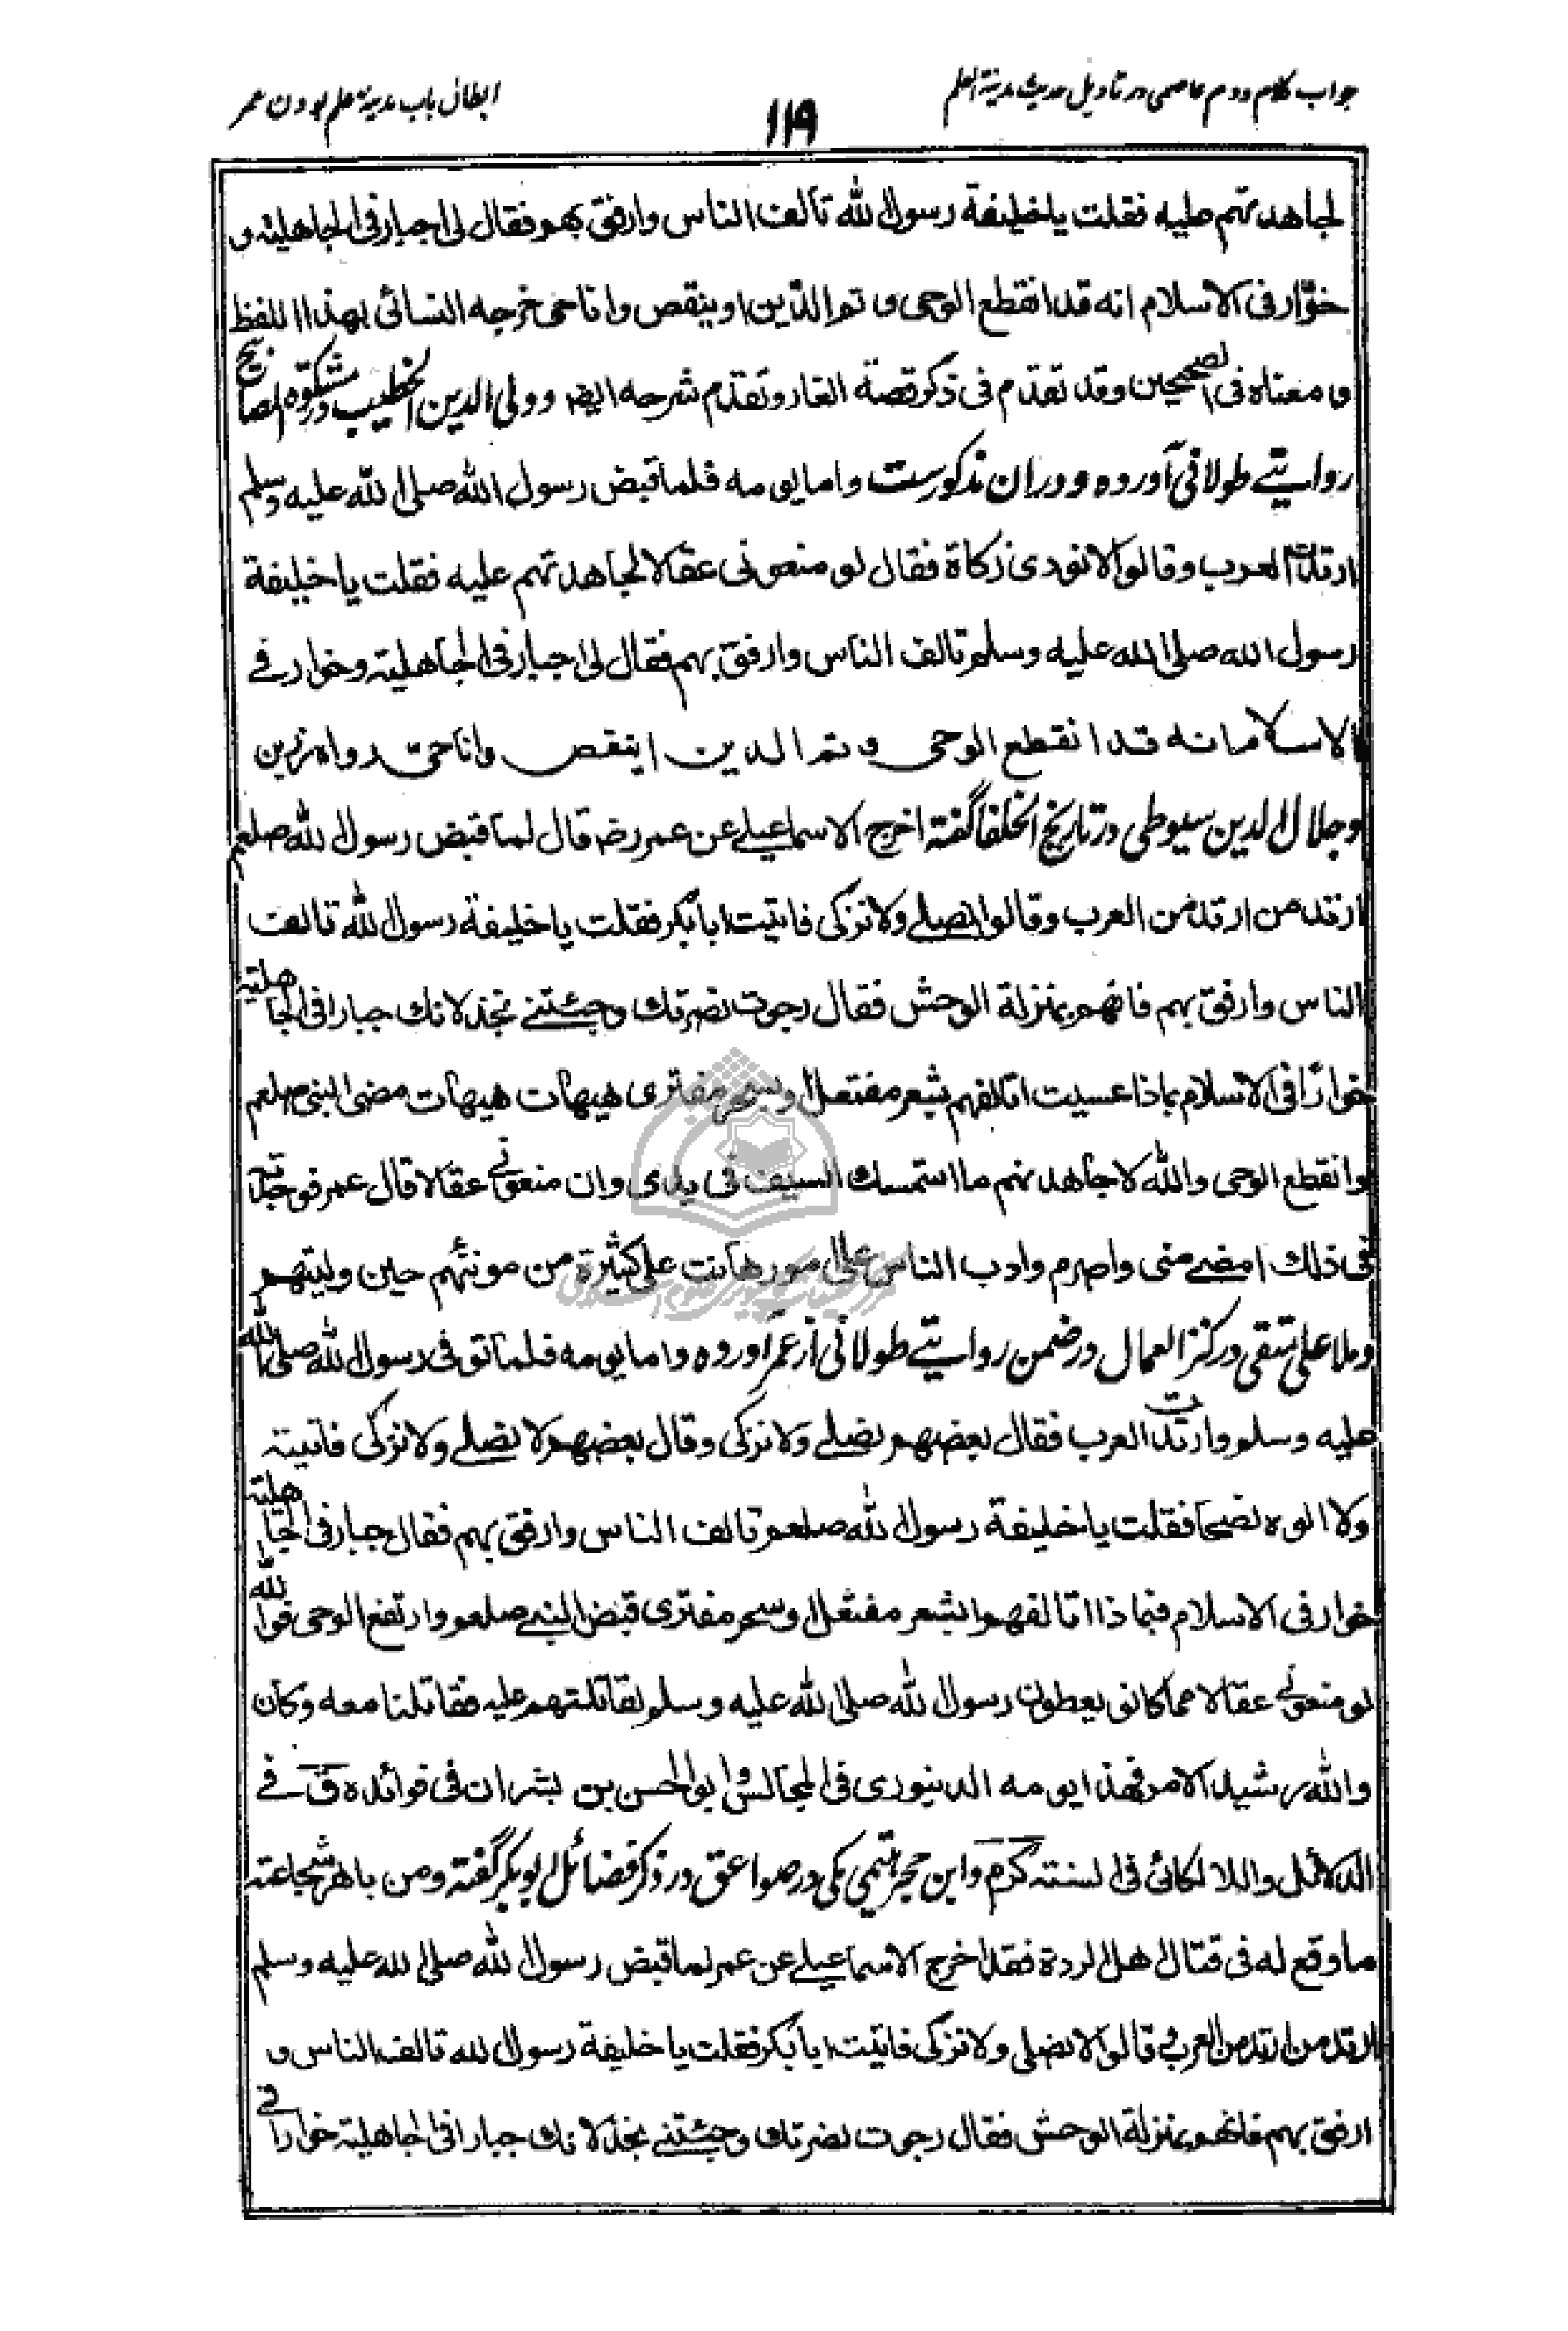 جواب کلام دوم عاصمی در تاویل حدیث مدینة العلم
۱۱۹
ابطال باب مدینة علم بودن عمر
لجاهدتهم علیه فقلت یا خلیفة رسول الله تألف الناس وارفق بهم فقال لی اجبار فی الجاهلیة و
خوّار فی الاسلام انه قد انقطع الوحی و تم الدّین اوینقص وانا حی خرجه النسائی بهذا اللفظ
و معناه فی الصحیحین وقد تقدم فی ذکر قصة الغار وتقدم شرحه ایضا و ولی الدین الخطیب در مشکوٰة المصابیح
روایتے طولانی آورده و دران مذکورست واما یومه فلما قبض رسول الله صلی الله علیه وسلم
ارتدت العرب وقالوا لا نودی زکاة فقال لو منعونی عقالا لجاهدتهم علیه فقلت یا خلیفة
رسول الله صلی الله علیه وسلم تالف الناس وارفق بهم فقال لی اجبار فی الجاهلیة وخوار فے
الاسلام انه قد انقطع الوحی و تم الدین اینقص وانا حیّ رواه رزین
و جلال الدین سیوطی در تاریخ الخلفا گفته اخرج الاسماعیلے عن عمر رضـ قال لما قبض رسول الله صلعم
ارتد من ارتد من العرب وقالوا نصلے ولا نزکی فاتیت ابا بکر فقلت یا خلیفة رسول الله تالف
الناس وارفق بهم فانهم بمنزلة الوحش فقال رجوت نصرتك وجئتنے بخذلانك جبارا فی الجاهلیة
خوارًا فی الاسلام بماذا عسیت اتالفهم بشعر مفتعل او بسحر مفتری هیهات هیهات مضی النبی صلعم
وانقطع الوحی والله لاجاهدنهم ما استمسك السیف فی یدی وان منعونی عقالا قال عمر فوجدته
فی ذلك امضے منی واصرم وادب الناس علی امور هانت علی کثیرة من مونتهم حین ولیتهم
وملا علی متقی در کنز العمال در ضمن روایتے طولانی از عمر آورده واما یومه فلما توفی رسول الله صلی الله
علیه وسلم وارتدت العرب فقال بعضهم نصلے ولا نزکی وقال بعضهم لا نصلے ولا نزکی فاتیته
ولا الوه نصحا فقلت یا خلیفة رسول الله صلعم تالف الناس وارفق بهم فقال جبار فی الجاهلیة
خوار فی الاسلام فبما ذا اتالفهم ابشعر مفتعل او سحر مفتری قبض النبے صلعم وارتفع الوحی فوالله
لو منعونی عقالا مما کانوا یعطون رسول الله صلی الله علیه وسلم لقاتلتهم علیه فقاتلنا معه وکان
والله رشید الامر فهذا یومه الدینوری فی المجالس و ابو الحسن بن بشران فی فوائده ق فے
الدلائل واللالکائی فی السنة کرم وابن حجر هیتمی مکی در صواعق در ذکر فضائل ابو بکر گفته ومن باهر شجاعته
ما وقع له فی قتال اهل الردة فقد اخرج الاسماعیلے عن عمر لما قبض رسول الله صلی الله علیه وسلم
ارتد من ارتد من العرب و قالوا لا نصلی ولا نزکی فاتیت ابا بکر فقلت یا خلیفة رسول الله تالف الناس و
ارفق بهم فانهم بمنزلة الوحش فقال رجوت نصرتك وجئتنے بخذلانك جبارا فی الجاهلیة خوارا فے